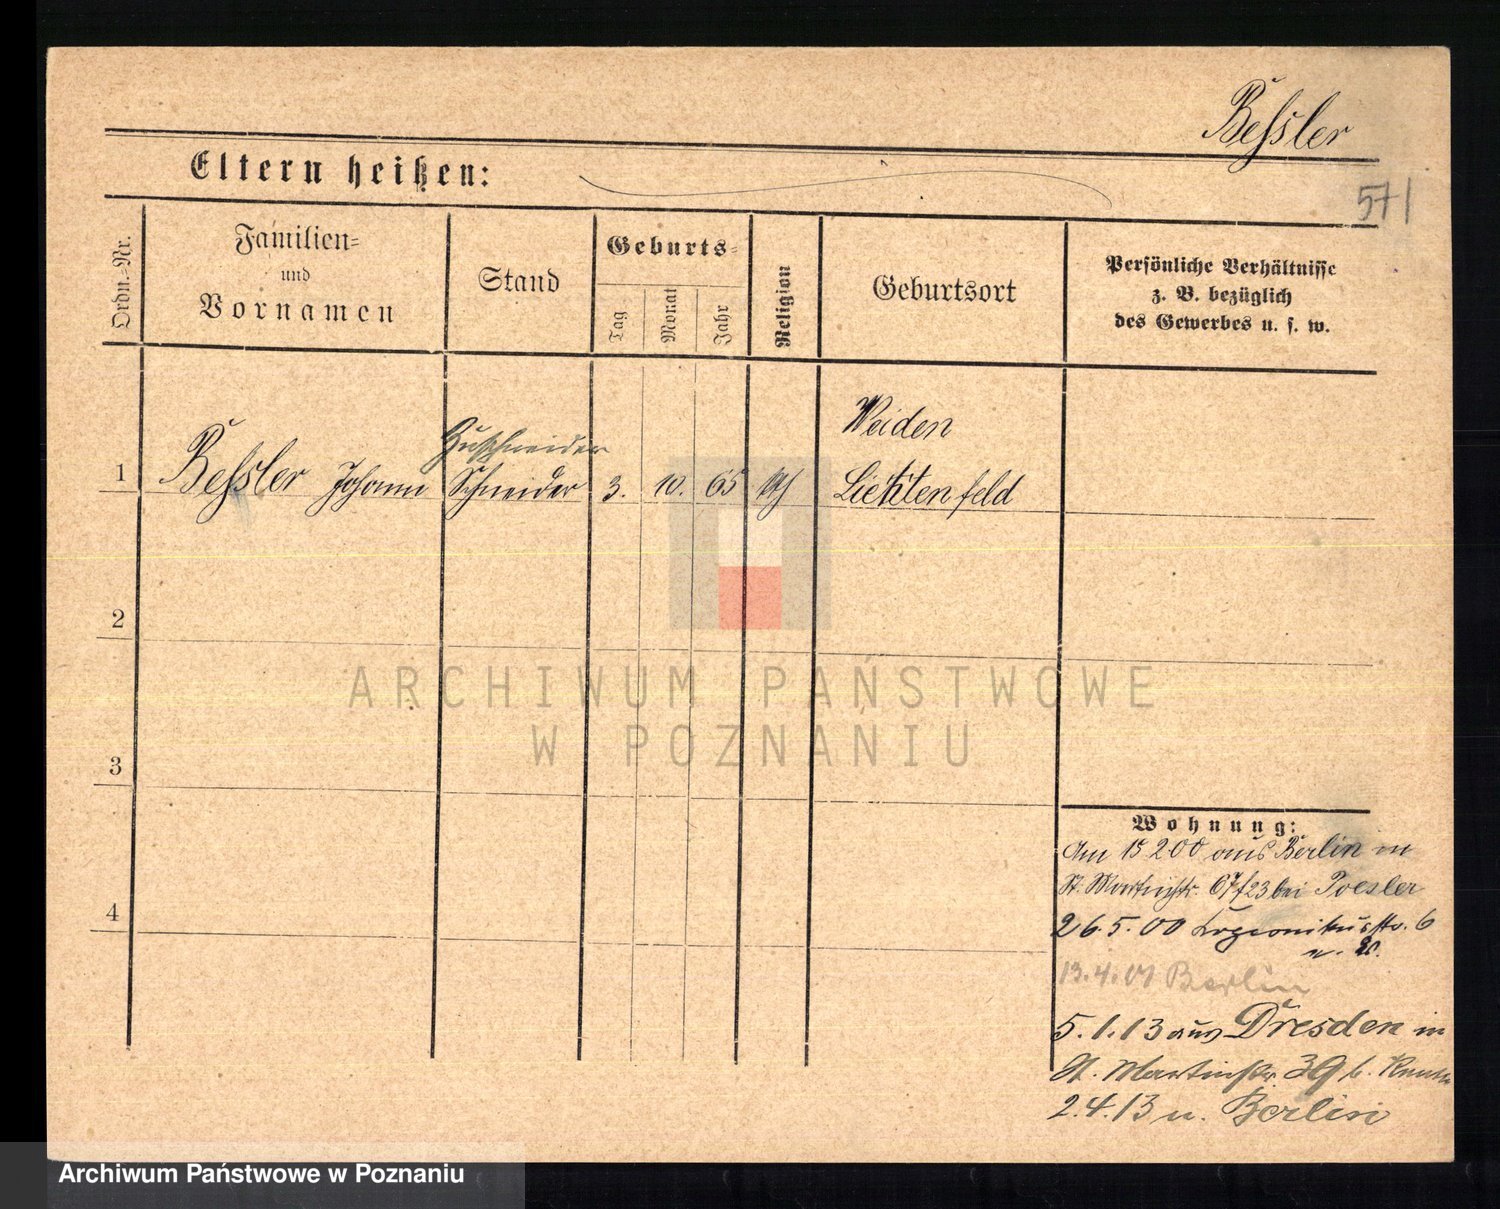 Bessler
571
Eltern heißen:
Ordn.-Nr.
Familien-
und
Vornamen
Stand
Geburts-
Tag
Monat
Jahr
Religion
Geburtsort
Persönliche Verhältnisse
z. B. bezüglich
des Gewerbes u. s. w.
Weiden
Zuschneider
1 Bessler Johann Schneider 3. 10. 65 Lichtenfeld
2
3
4
Wohnung:
Am 15 2 00 aus Berlin in
St. Martinstr. 67/23 bei
26.5.00 6
13.4.01 Berlin
5.1.13 aus Dresden in
St. Martinstr 39 b.
2.4.13 n. Berlin
ARCHIWUM PAŃSTWOWE
W POZNANIU
Archiwum Państwowe w Poznaniu